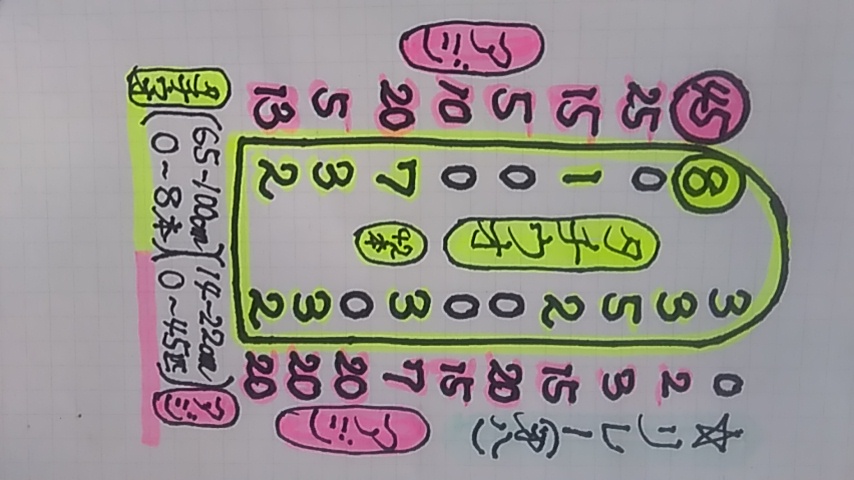 ☆リレー(第八)
アジ
45
25
15
5
10
20
5
13
8
0
1
0
0
7
3
2
タチウオ
42本
3
3
5
2
0
0
3
0
3
2
0
2
3
15
20
15
7
20
20
20
アジ
タチウオ
65~100cm
0~8本
14~22cm
0~45匹
アジ